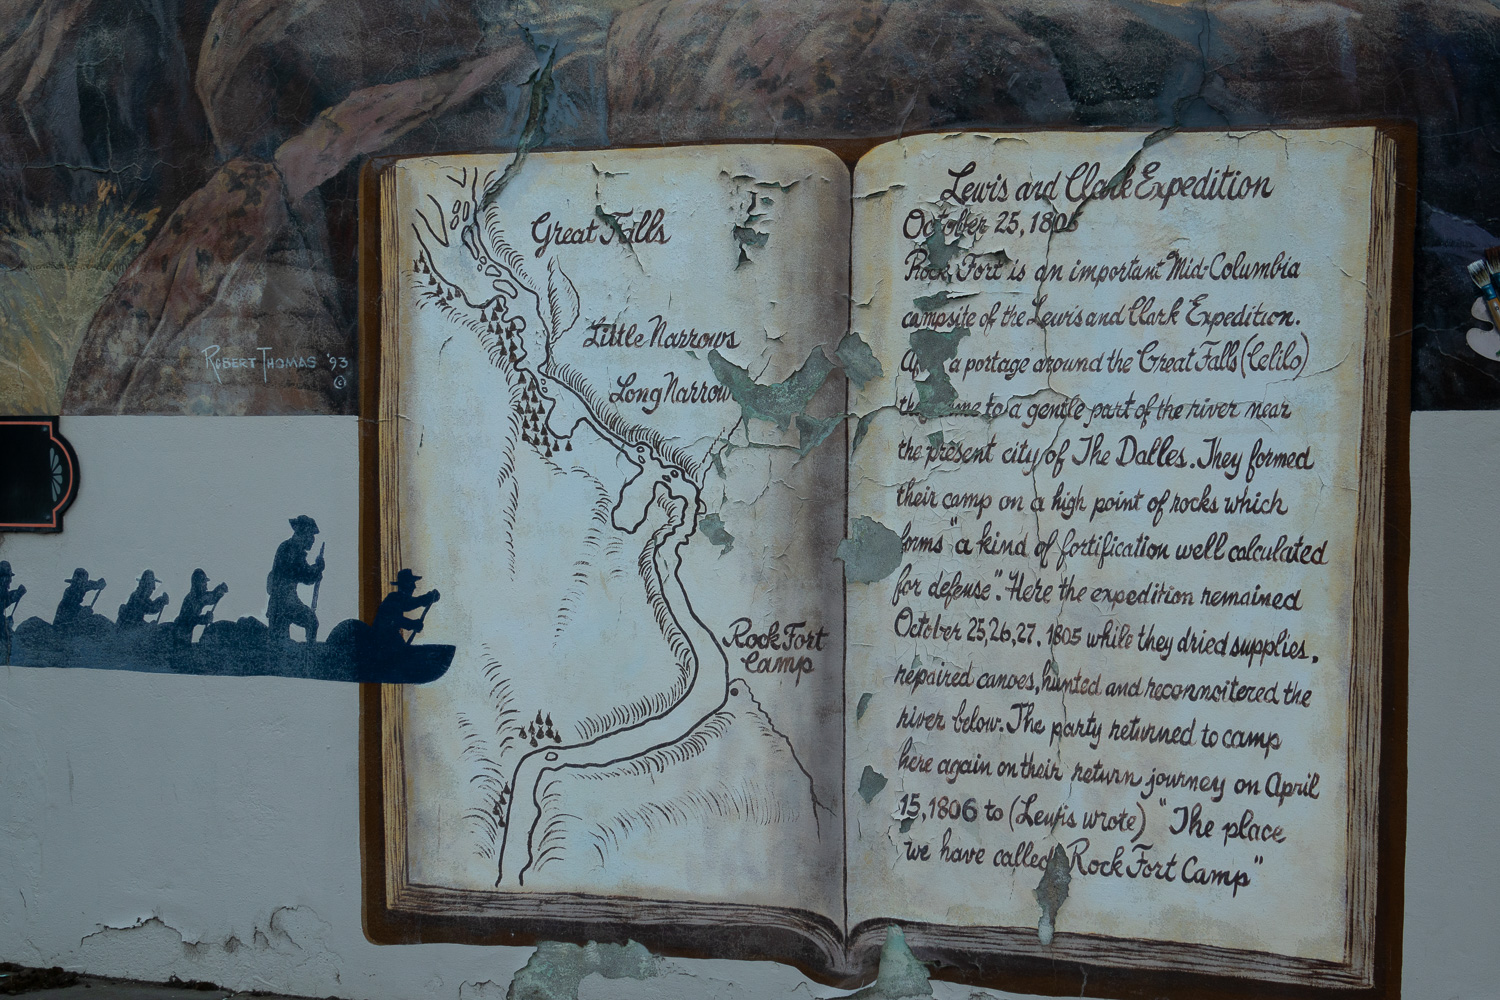 Great Falls
Little Narrows
Long Narrow
Rock Fort
Camp
ROBERT THOMAS '93
©
Lewis and Clark Expedition
October 25, 1806
Rock Fort is an important Mid-Columbia
campsite of the Lewis and Clark Expedition.
a portage around the Great Falls (Celilo)
to a gentle part of the river near
the present city of The Dalles. They formed
their camp on a high point of rocks which
forms "a kind of fortification well calculated
for defense". Here the expedition remained
October 25,26,27, 1805 while they dried supplies,
repaired canoes, hunted and reconnoitered the
river below. The party returned to camp
here again on their return journey on April
15, 1806 to (Lewis wrote) "The place
we have called Rock Fort Camp"